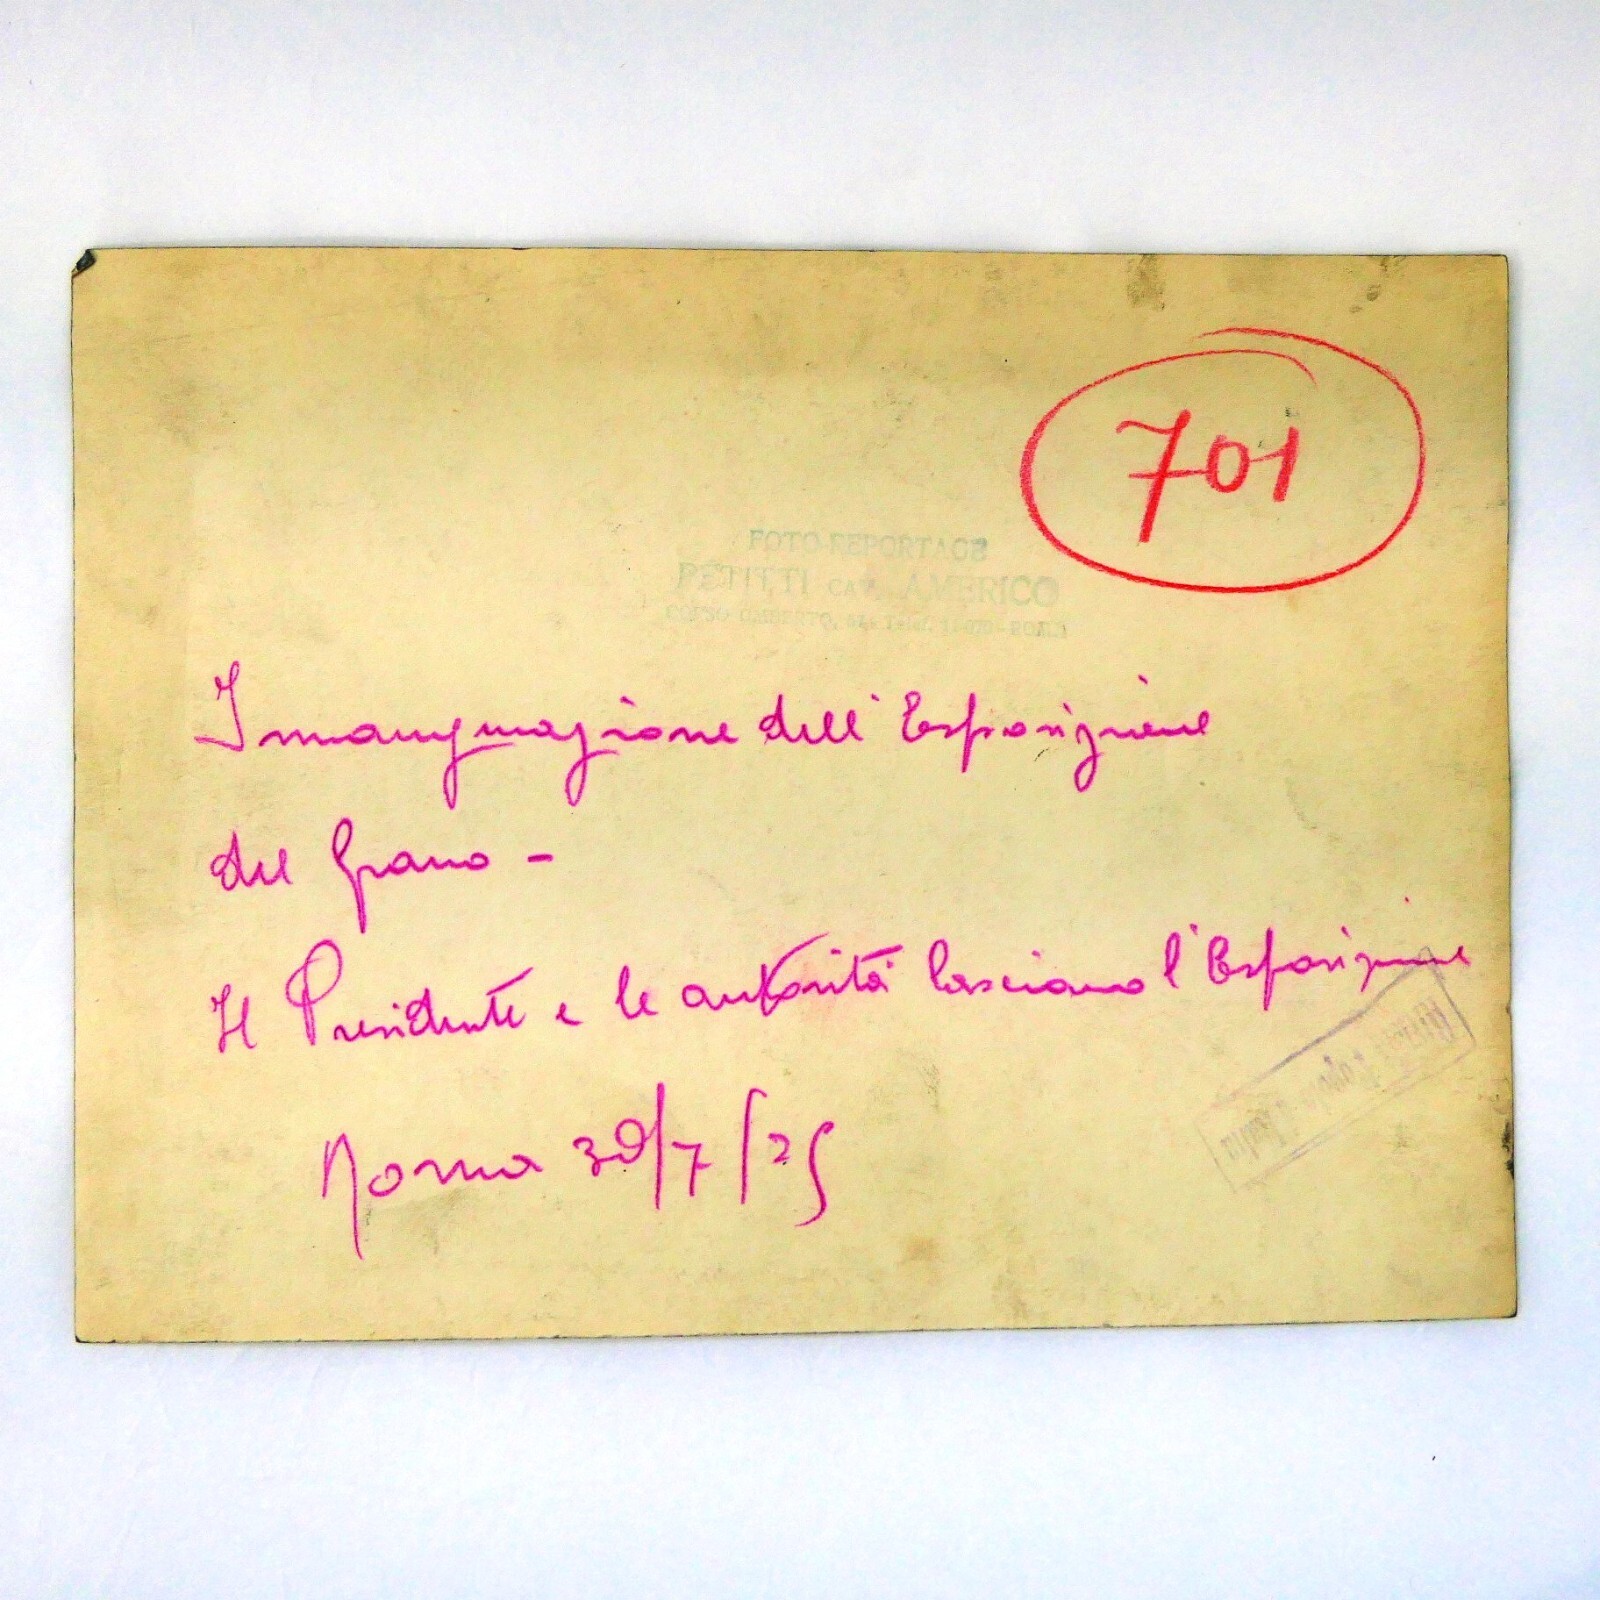 701
FOTO-REPORTAGE
PETITTI CAV. AMERICO
CORSO UMBERTO, ROMA
Innaugurazione dell'Esposizione
del Grano -
Il Presidente e le autorità lasciano l'Esposizione
Roma 30/7/25